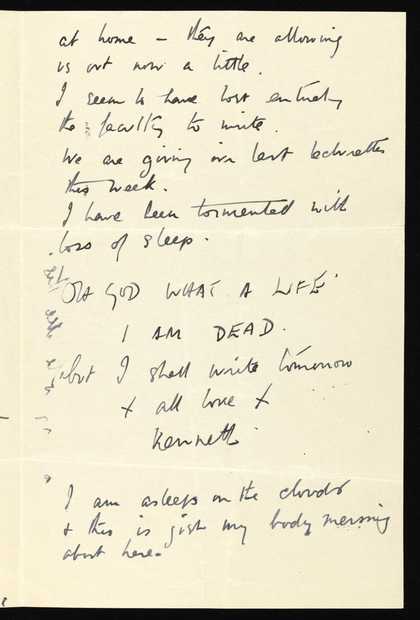 at home – they are allowing
us out now a little.
I seem to have lost entirely
the faculty to write.
We are giving our last
this week.
I have been tormented with
loss of sleep.
OH GOD WHAT A LIFE
I AM DEAD.
but I shall write tomorrow
x all love x
Kenneth
I am asleep on the clouds
& this is just my body messing
about here.